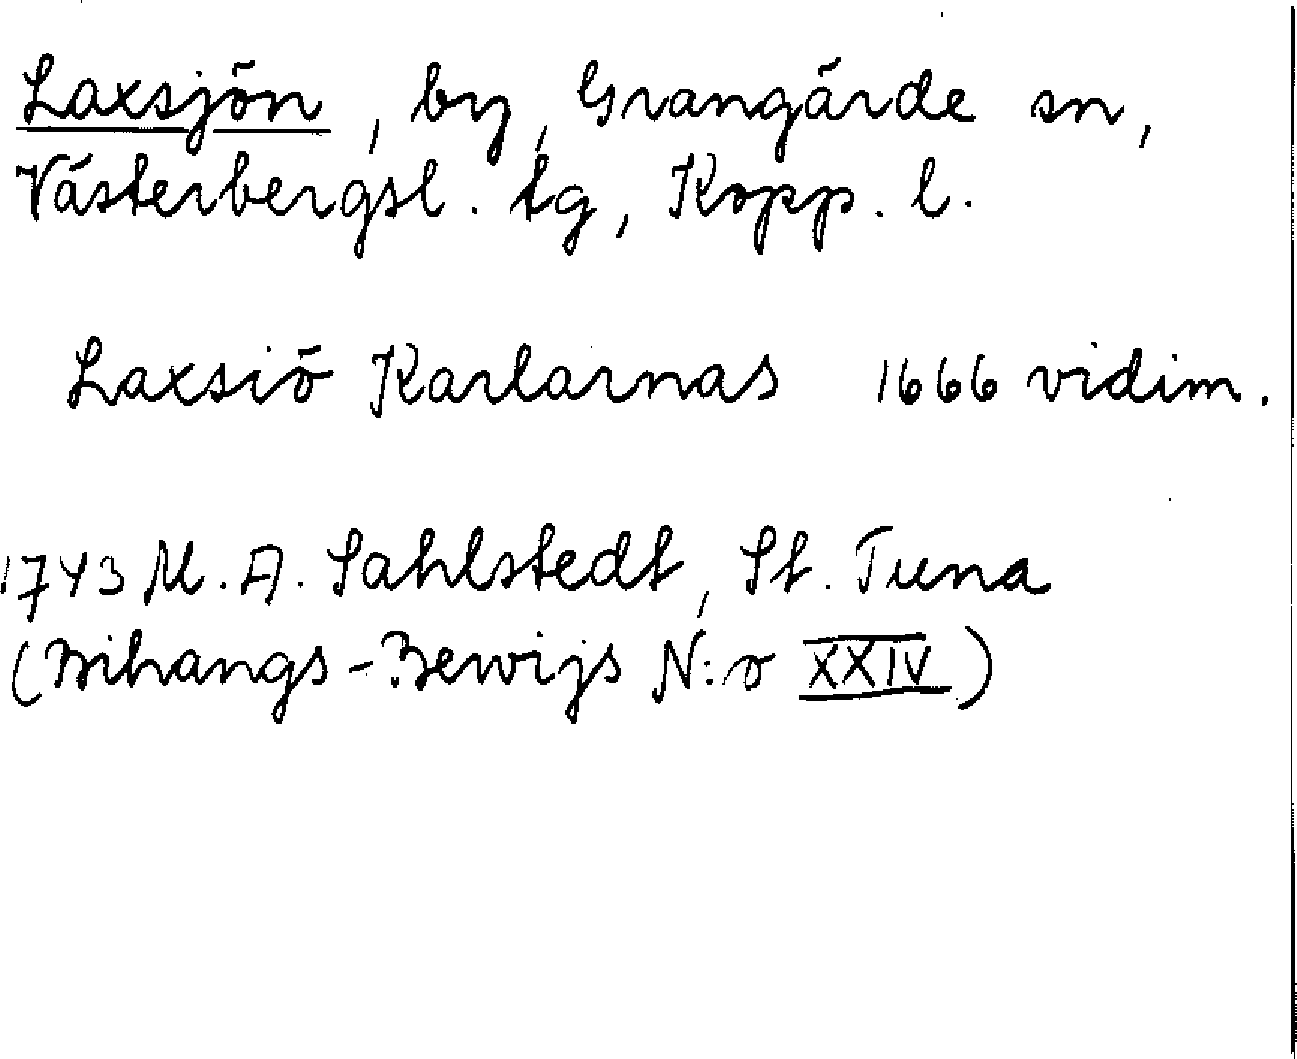 Laxsjön, by, Grangärde sn,
Västerbergsl. tg, Kopp. l.
Laxsiö Karlarnas 1666 vidim.
1743 M. A. Sahlstedt, St. Tuna
(Bihangs-Bewijs N:o XXIV)